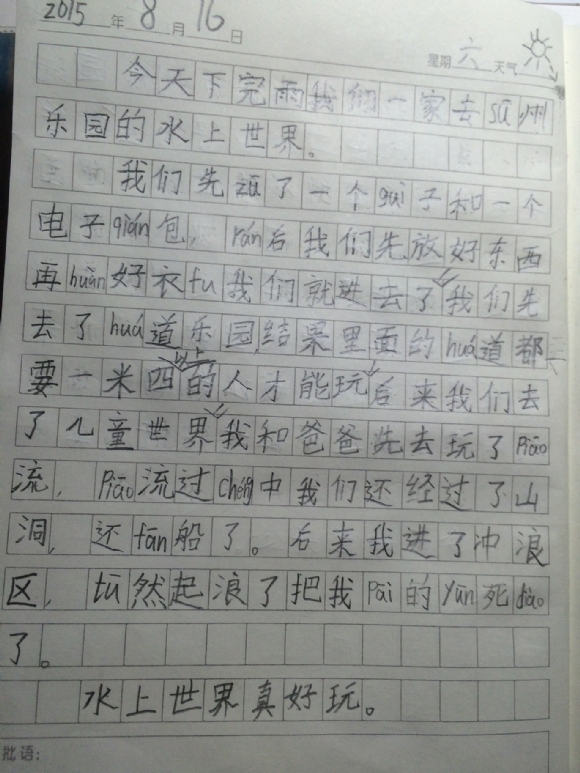 2015年8月16日
星期六 天气
今天下完雨我们一家去sū州
乐园的水上世界。
我们先zū了一个guì子和一个
电子qián包,rán后我们先放好东西
再huàn好衣fu我们就进去了我们先
去了huá道乐园,结果里面的huá道都
要一米四以上的人才能玩,后来我们去
了儿童世界,我和爸爸先去玩了Piāo
流,Piāo流过chéng中我们还经过了山
洞,还fān船了。后来我进了冲浪
区,tū然起浪了把我Pāi的yūn死dǎo
了。
水上世界真好玩。
批语: